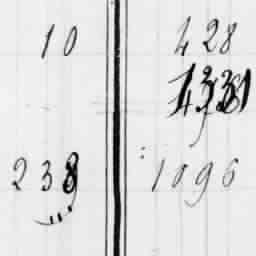 10 428
238 1096